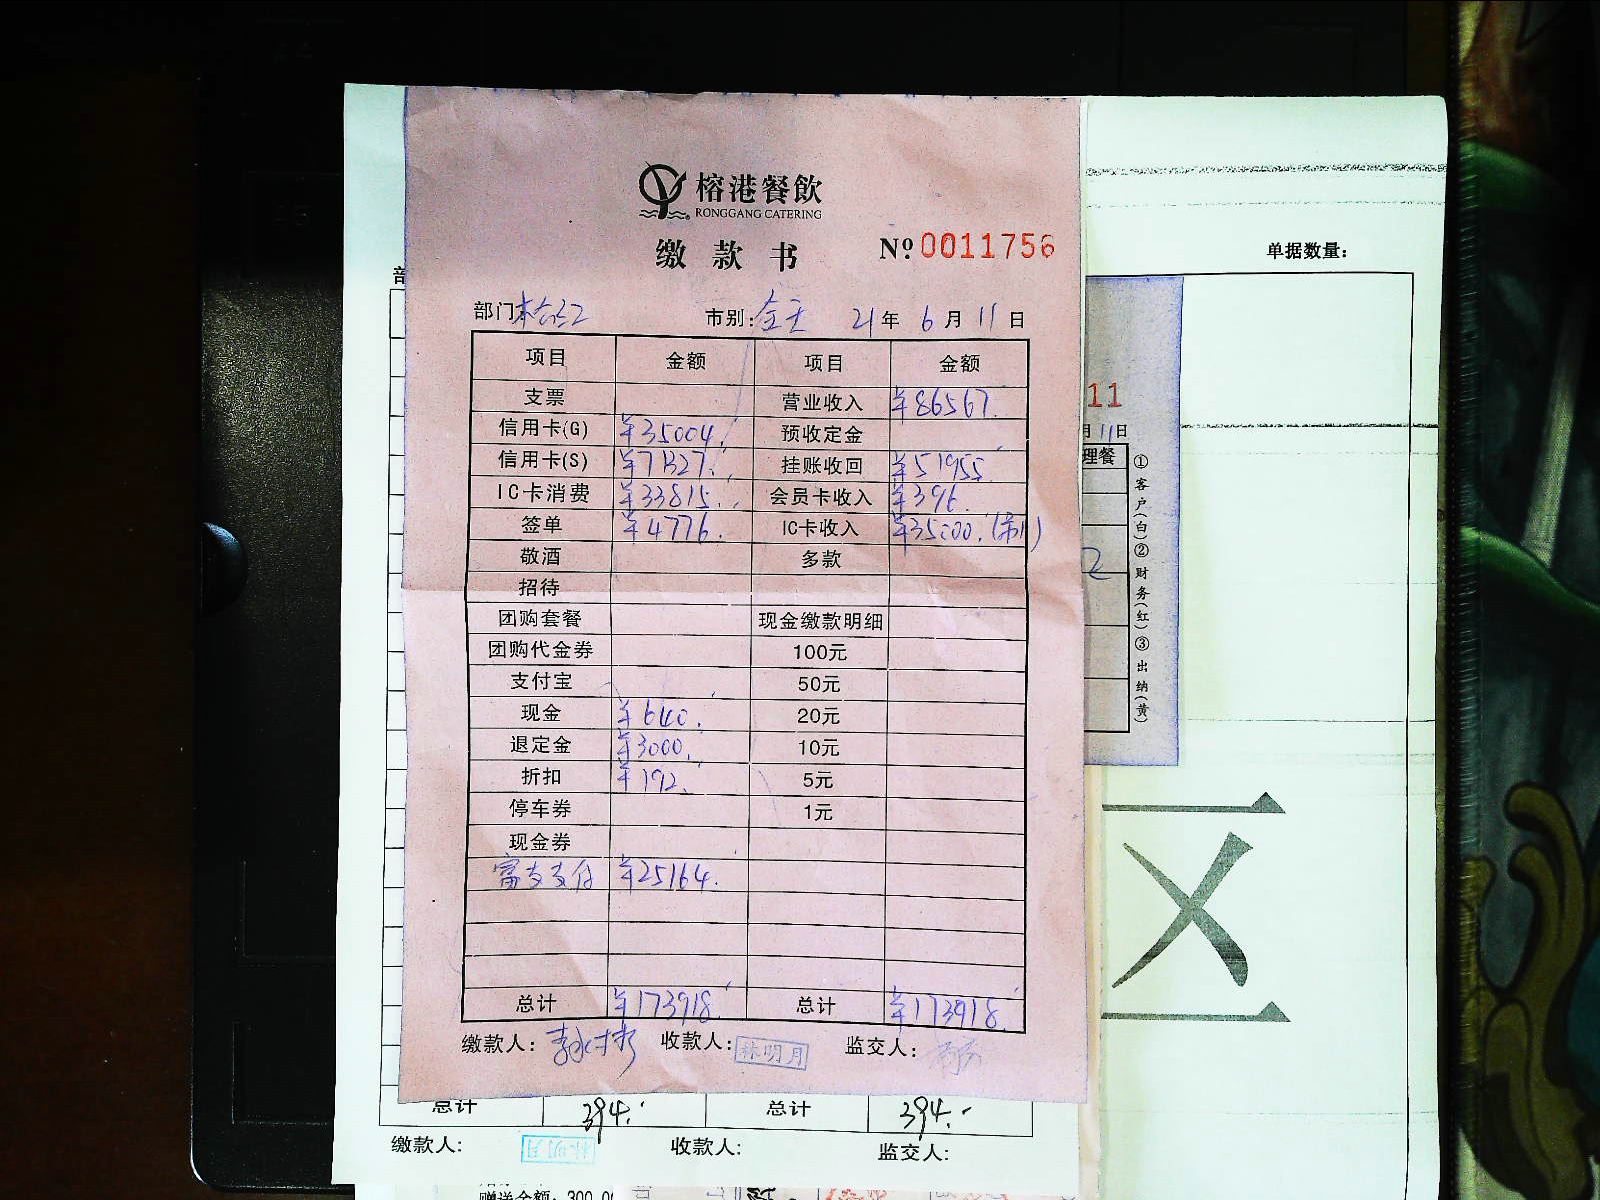 榕港餐飲
RONGGANG CATERING
缴款书 № 0011756
部门: 市别: 全天 21年 6月 11日
项目 金额 项目 金额
支票 营业收入 ¥86567.
信用卡(G) ¥35004. 预收定金
信用卡(S) ¥71327. 挂账收回 ¥51955
IC卡消费 ¥33815. 会员卡收入 ¥396.
签单 ¥4776. IC卡收入 ¥35000.
敬酒 多款
招待
团购套餐 现金缴款明细
团购代金券 100元
支付宝 50元
现金 ¥640. 20元
退定金 ¥3000. 10元
折扣 ¥192. 5元
停车券 1元
现金券
富友支付 ¥25164.
总计 ¥173918. 总计 ¥173918.
缴款人: 收款人: 林明月 监交人:
总计 394. 总计 394.
缴款人: 林明月 收款人: 监交人:
赠送金额: 300.00
单据数量:
11
月11日
理餐
2
①客户(白)②财务(红)③出纳(黄)
区